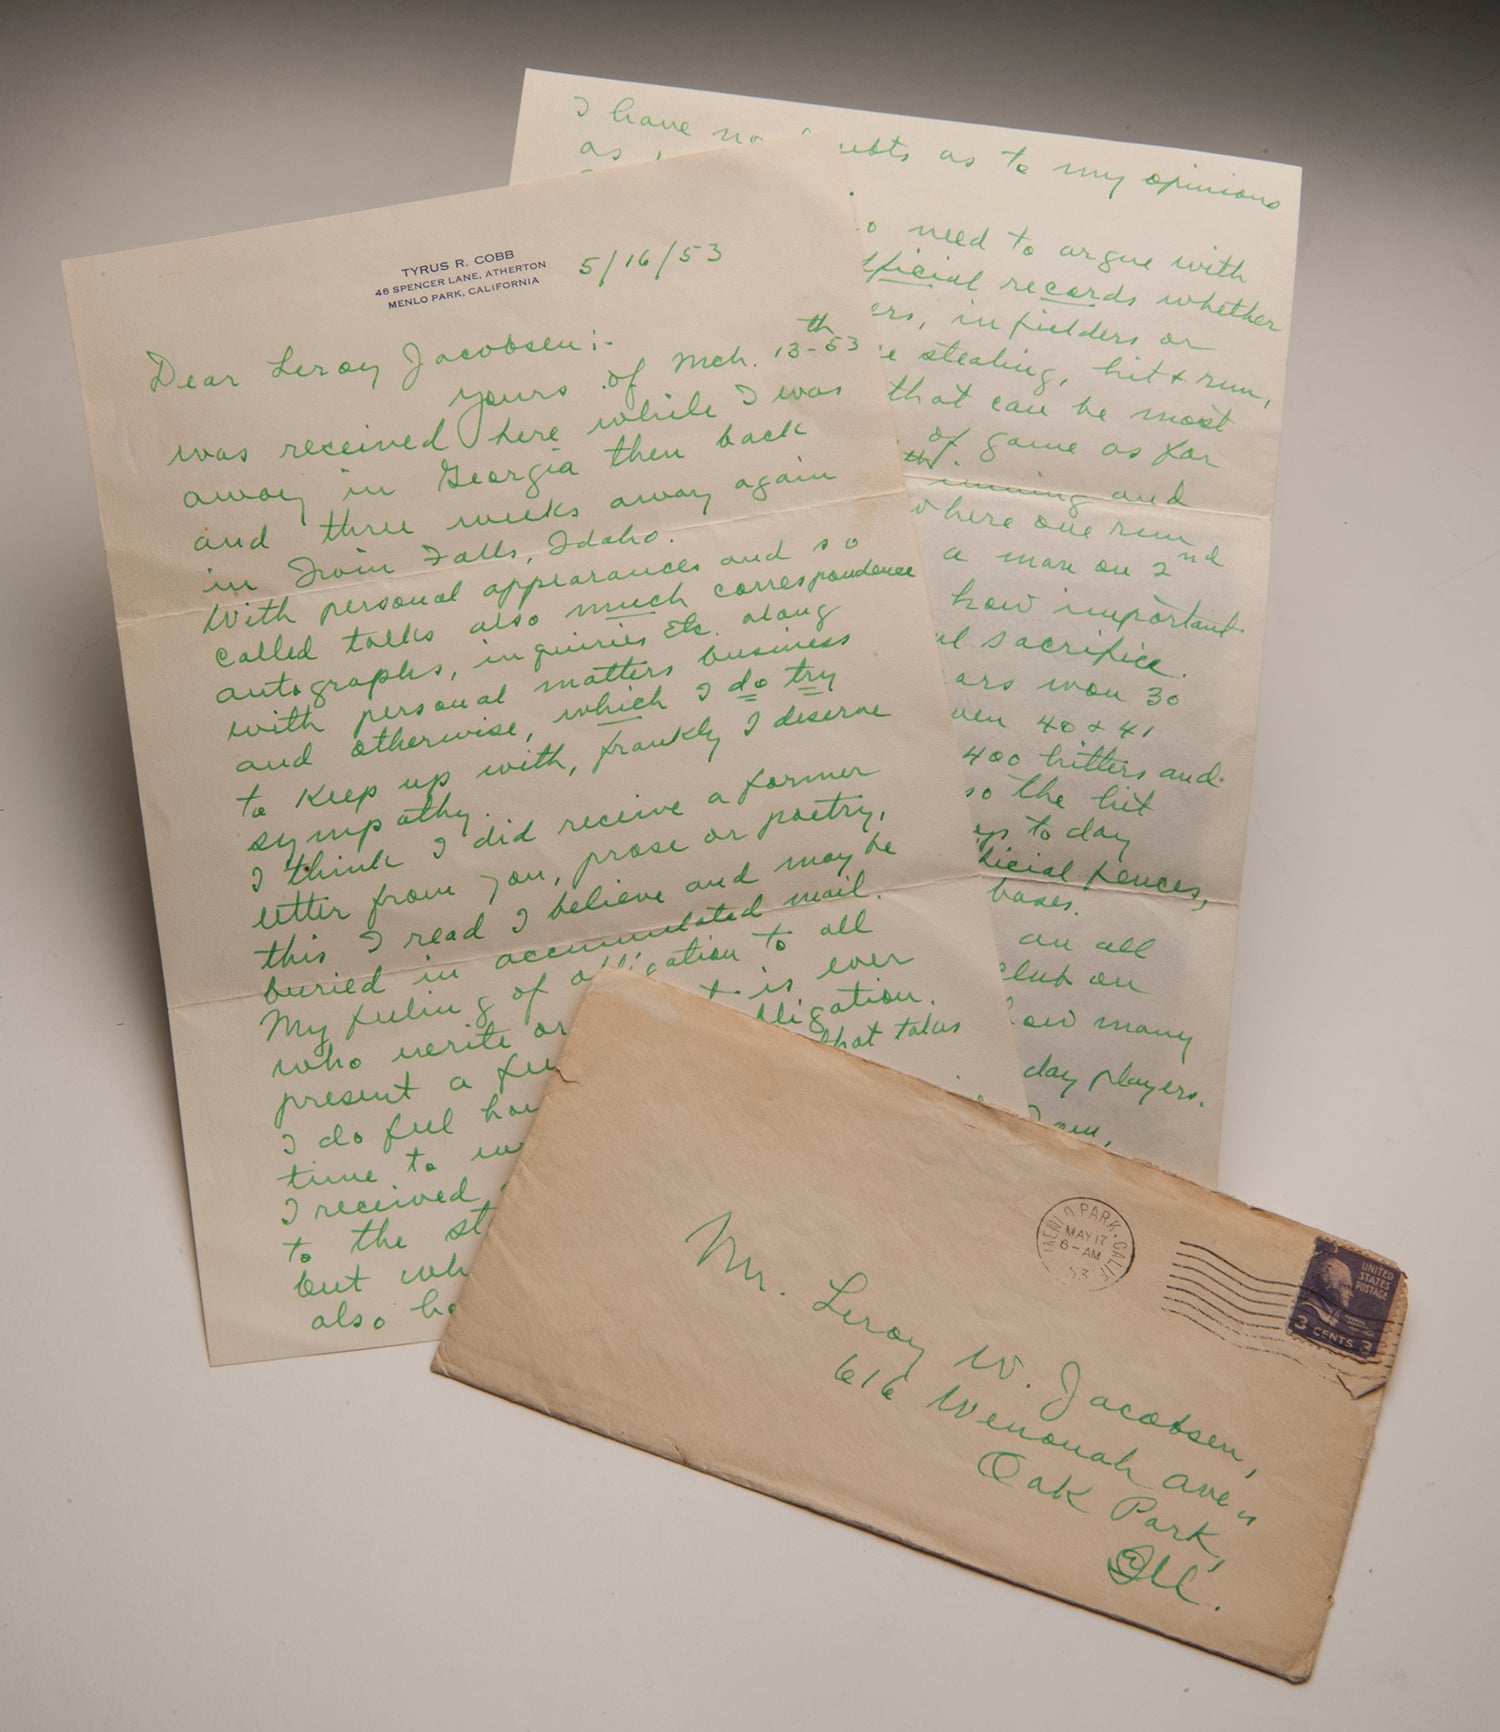 TYRUS R. COBB
48 SPENCER LANE, ATHERTON
MENLO PARK, CALIFORNIA
5/16/53
Dear Leroy Jacobsen;-
yours of Mch. 13th-53
was received here while I was
away in Georgia then back
and three weeks away again
in Twin Falls, Idaho.
With personal appearances and so
called talks also much correspondence
autographs, inquiries Etc. along
with personal matters business
and otherwise, which I do try
to keep up with, frankly I deserve
sympathy.
I think I did receive a former
letter from you, prose or poetry,
this I read I believe and may be
buried in accumulated mail.
My feeling of obligation to all
who write or is ever
present a obligation.
I do feel that takes
time to
I received
to the
but
also
I have no as to my opinions
as
need to argue with
records whether
infielders or
stealing, hit & run,
that can be most
of game as far
th inning and
where one run
a man on 2nd
how important
sacrifice.
won 30
40 & 41
400 hitters and
so the hit
to day
fences,
bases.
an all
club on
how many
day players.
MENLO PARK, CALIF
MAY 17
6 - AM
53
UNITED
STATES
POSTAGE
3 CENTS 3
Mr. Leroy W. Jacobsen,
616 Wenonah Ave"
Oak Park,
Ill.